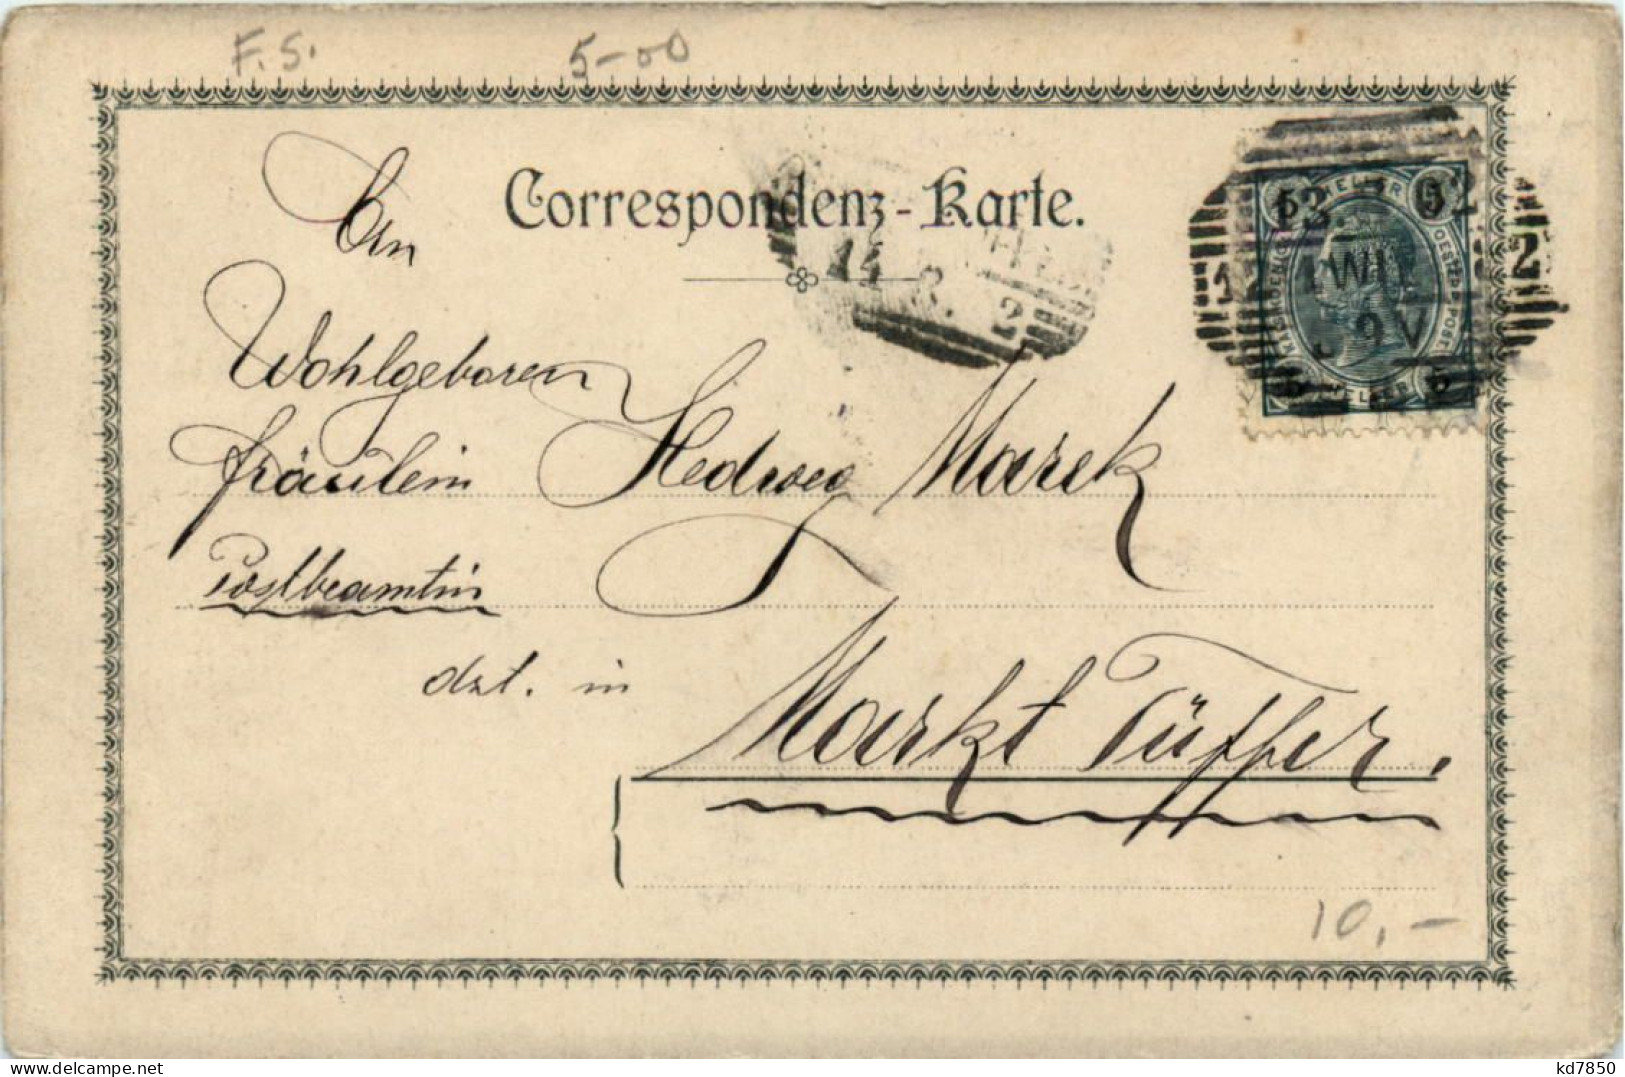 F. S. 5-00
Correspondenz-Karte.
An
Wohlgeboren
Fräulein Hedwig Marek
Postbeamtin
dzt. in
Markt Tüffer.
10,-
kd7850